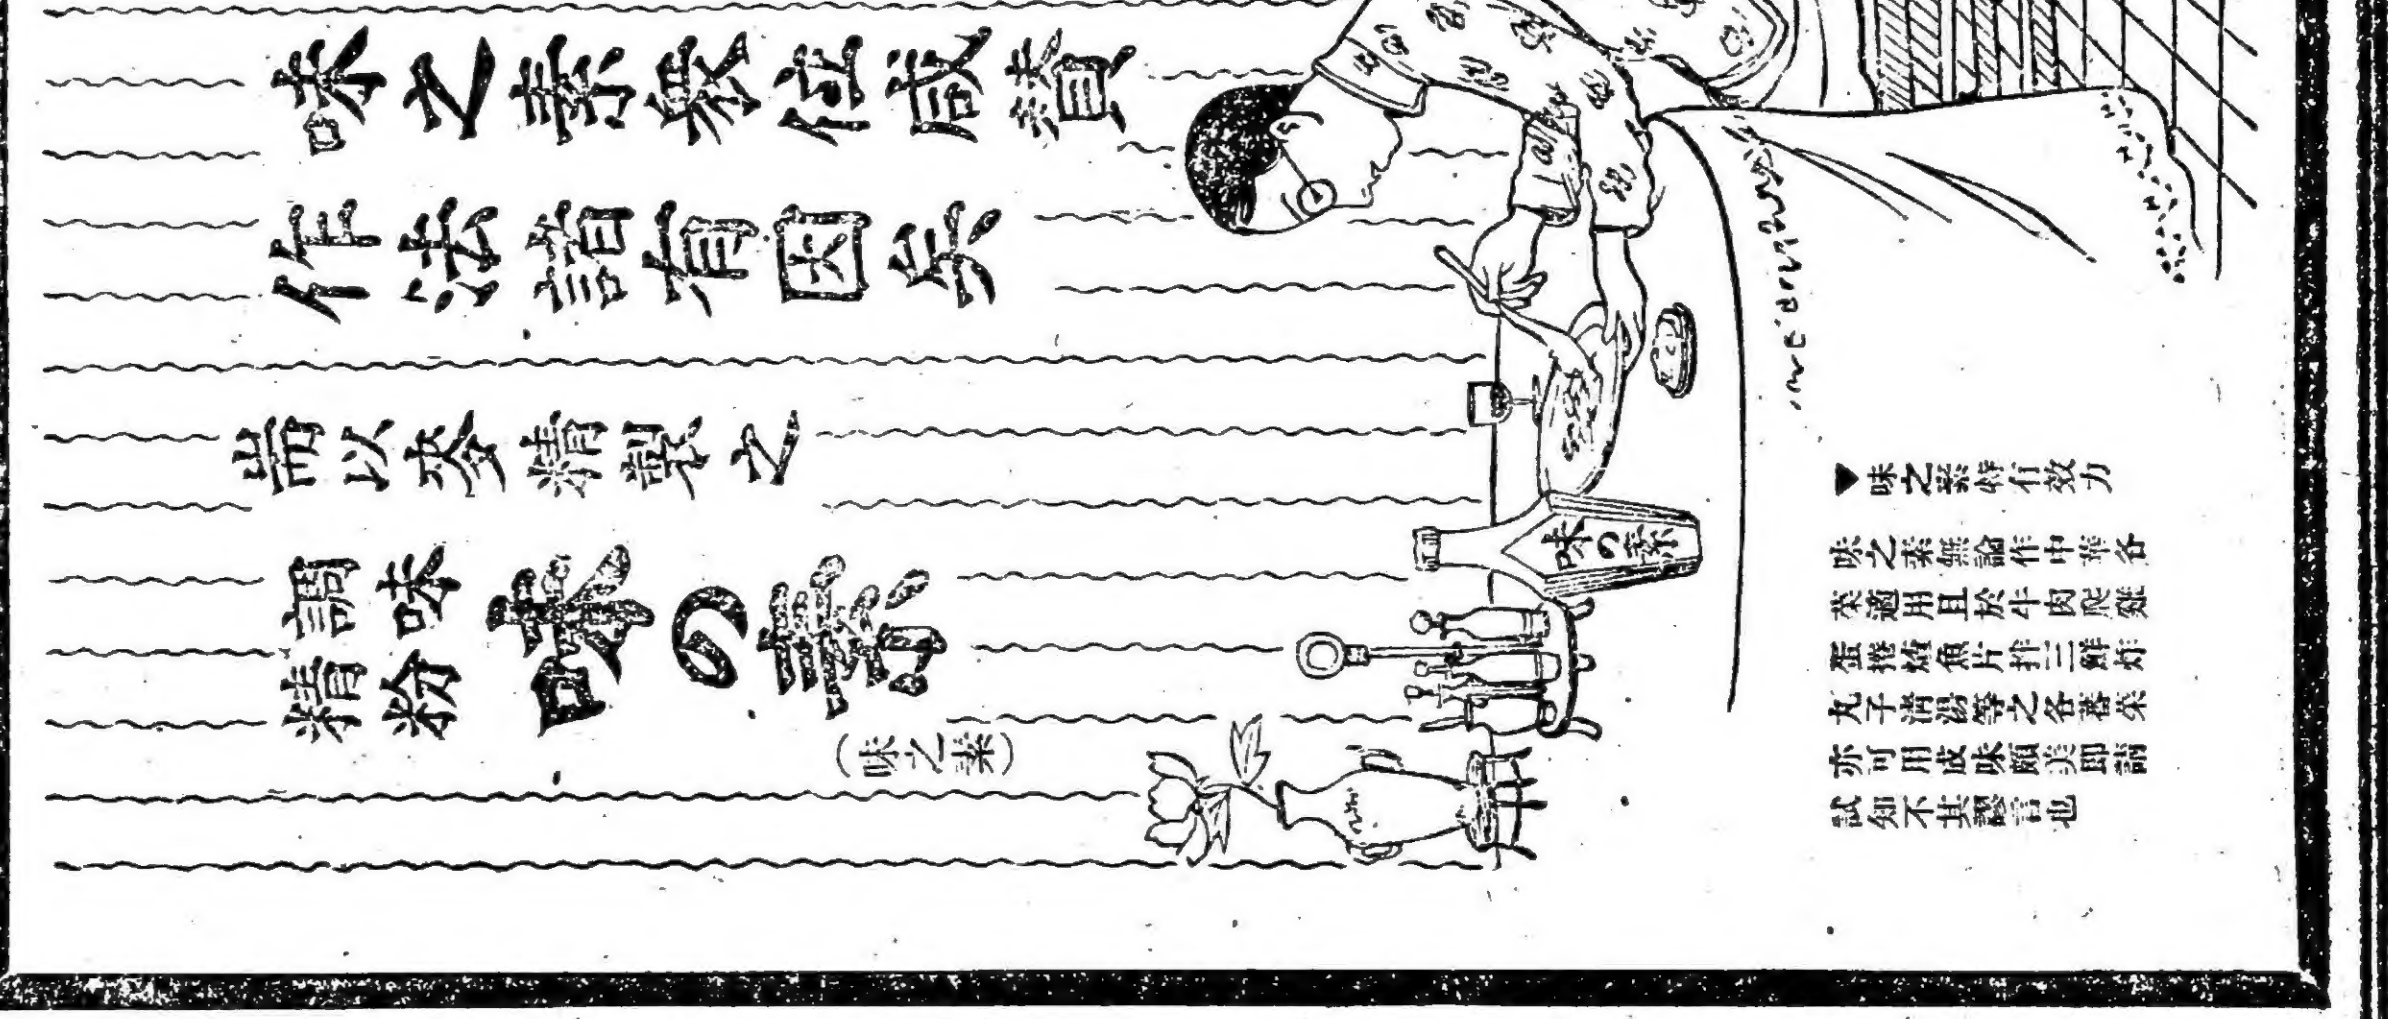 味之素位成績
作法諸有因矣
耑以麥精製之
調味
精粉
味の素
(味之素)
味の素
▼味之素特有效力
味之素無論作中華各
菜適用且於牛肉爬雞
蛋捲燴魚片拌三鮮炸
丸子清湯等之各蕃菜
亦可用成味頗美即請
試知不其謬言也